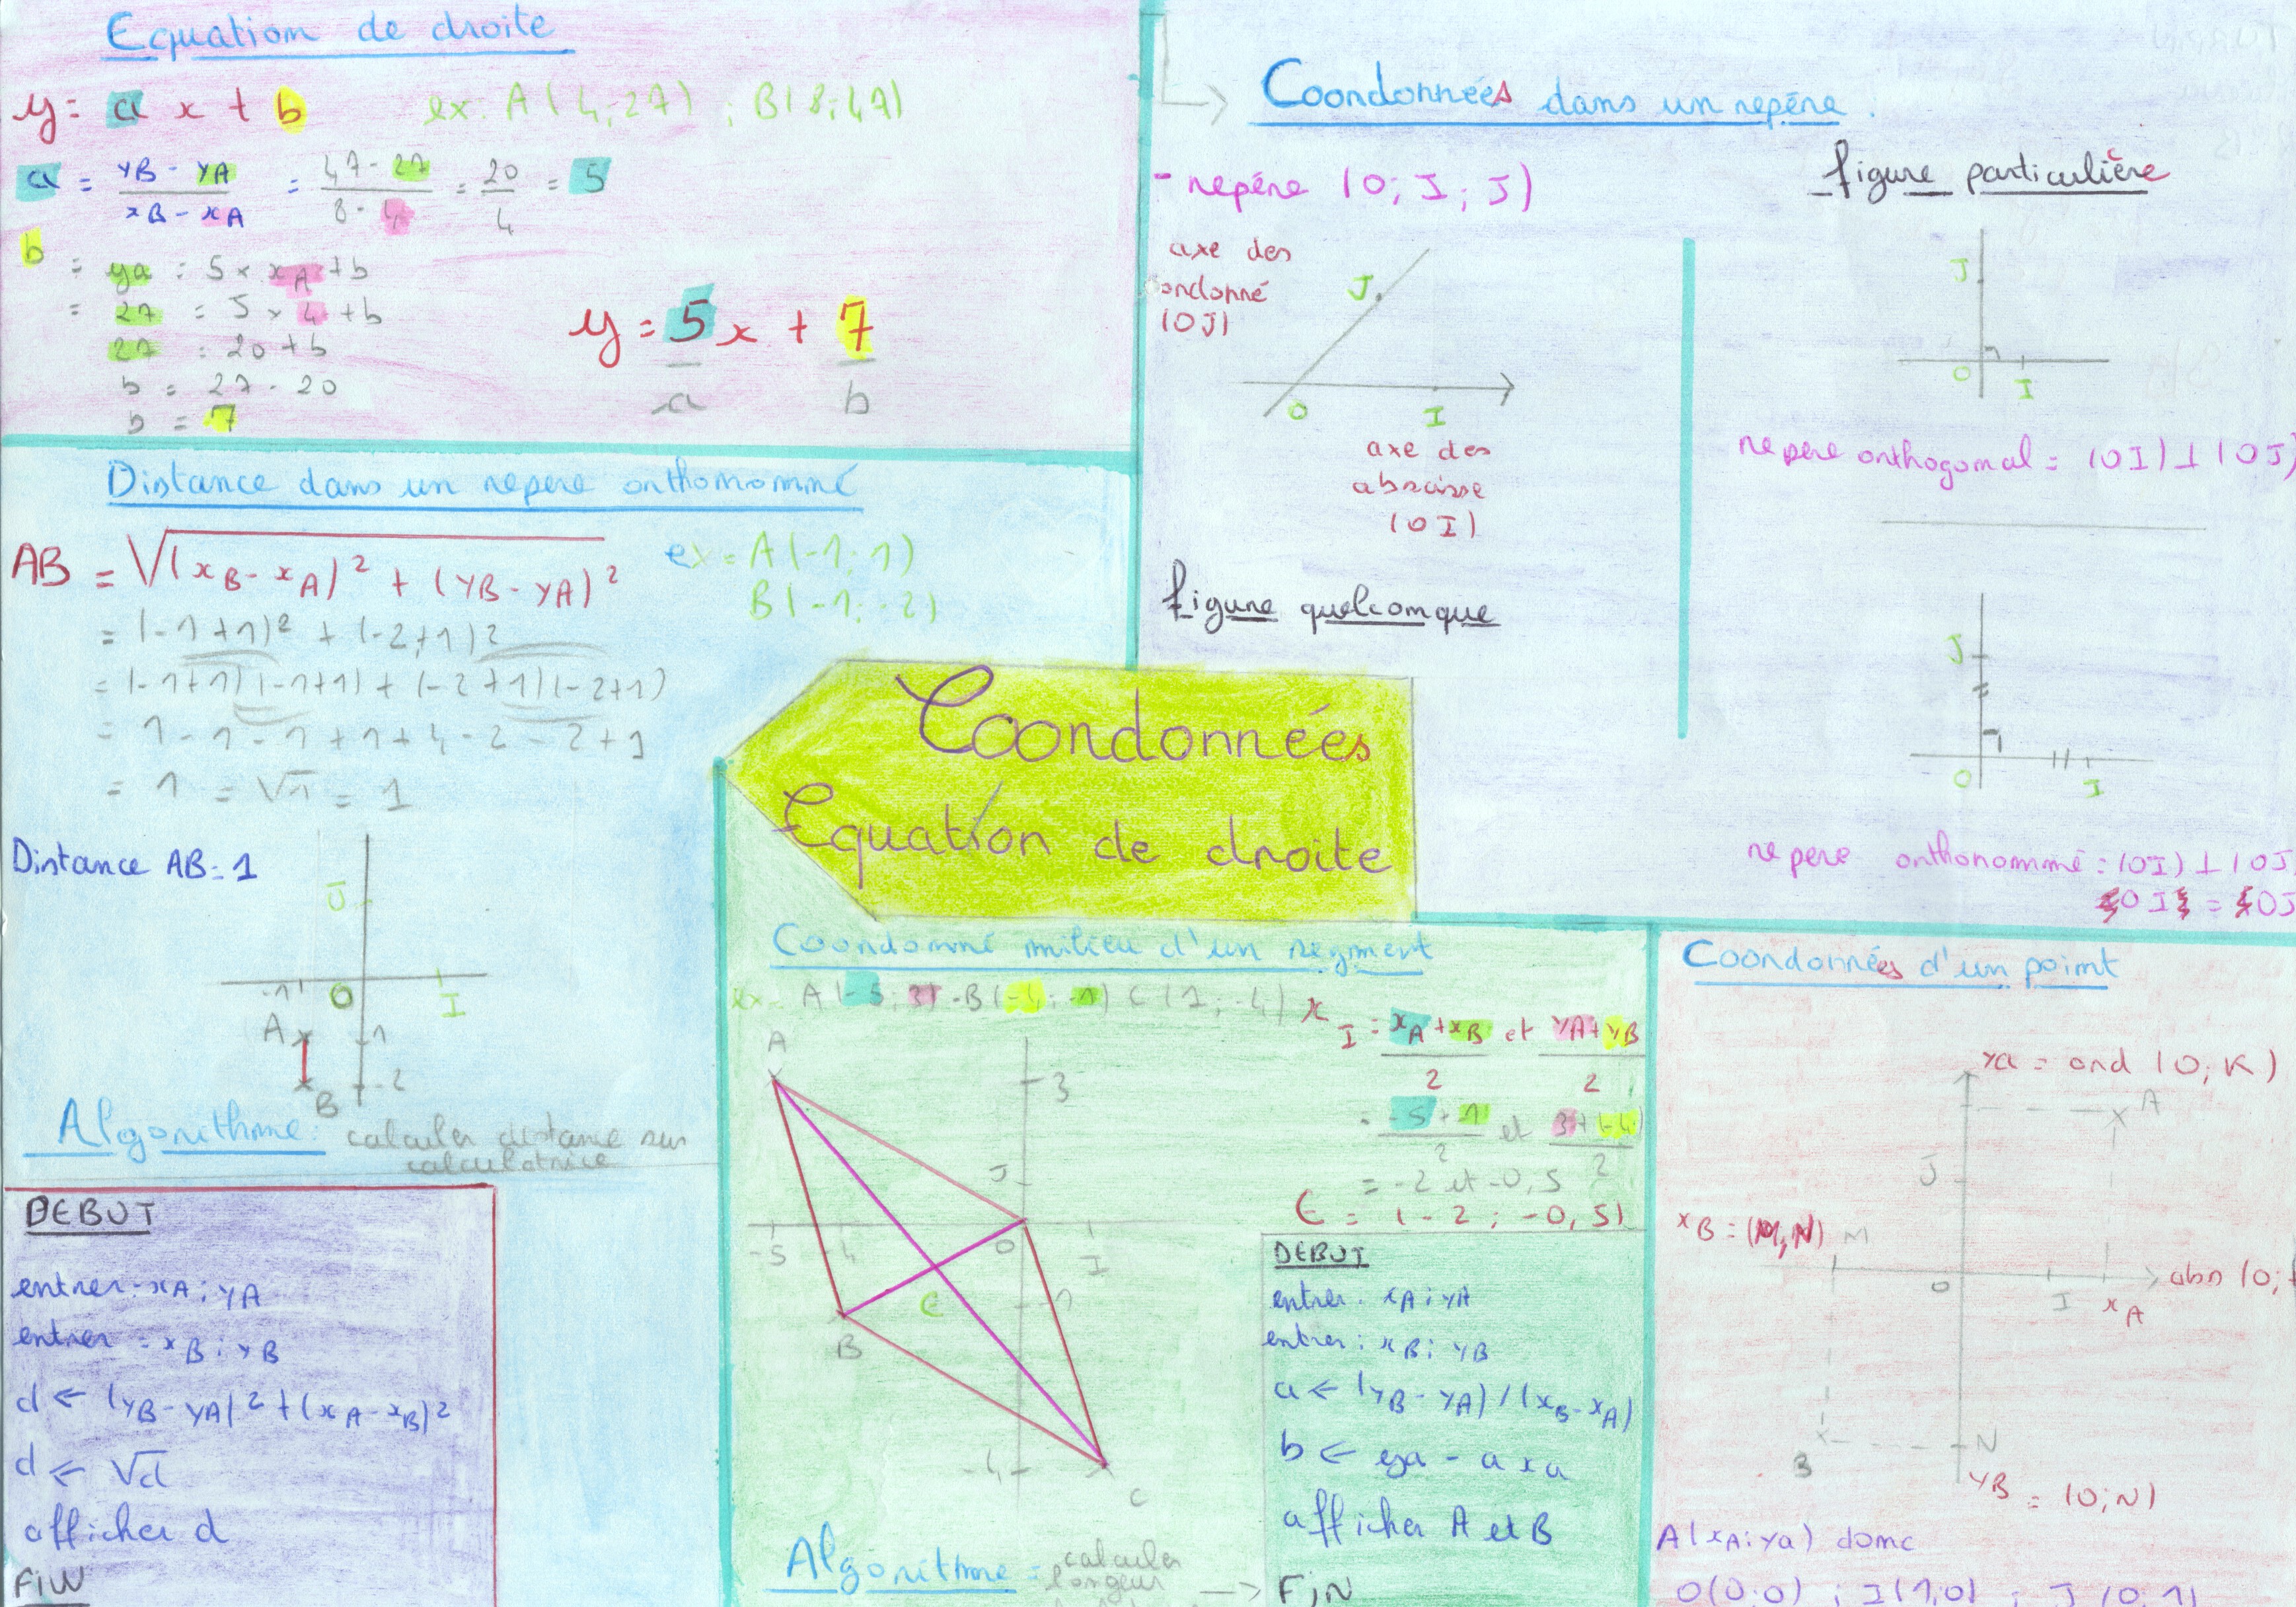 Equation de droite
y = a x + b
ex: A(4;27) ; B(8;47)
a = yB - yA / xB - xA = 47 - 27 / 8 - 4 = 20 / 4 = 5
b
= ya = 5 × xA + b
= 27 = 5 × 4 + b
27 = 20 + b
b = 27 - 20
b = 7
y = 5x + 7
a b
Distance dans un repere orthonormé
AB = √(xB - xA)² + (yB - yA)²
ex = A(-1;1)
B(-1;-2)
= (-1+1)² + (-2+1)²
= (-1+1)(-1+1) + (-2+1)(-2+1)
= 1 - 1 - 1 + 1 + 4 - 2 - 2 + 1
= 1 = √1 = 1
Distance AB = 1
J
-1 O I
A -1
B -2
Algorithme: calculer distance sur
calculatrice
DEBUT
entrer: xA ; yA
entrer = xB ; yB
d ← (yB - yA)² + (xA - xB)²
d ← √d
afficher d
FIN
Coordonnées dans un repére.
- repére (O; I; J)
axe des
ordonné
(OJ)
J
O I
axe des
abscisse
(OI)
figure quelconque
figure particulière
J
O I
repere orthogonal = (OI) ⊥ (OJ)
J
O I
repere orthonormé : (OI) ⊥ (OJ
OI = OJ
Coordonnées
Equation de droite
Coordonné milieu d'un segment
ex: A(-5;3) - B(-4;-1) C(1;-4)
xI = xA + xB / 2 et yA + yB / 2
= -5 + 1 / 2 et 3 + (-4) / 2
= -2 et -0,5
E = (-2 ; -0,5)
A
3
J
-5 -4 O I
E -1
B
-4
C
Algorithme = calculer
longeur
→ FiN
DEBUT
entrer: xA ; yA
entrer: xB ; yB
a ← (yB - yA) / (xB - xA)
b ← ya - a xa
afficher A et B
Coordonnées d'un point
ya = ord (O; K)
A
J
xB = (M,N) M
O I xA
abs (O;
B N
yB = (O;N)
A(xA ; ya) donc
O(0;0) ; I(1;0) ; J(0;1)